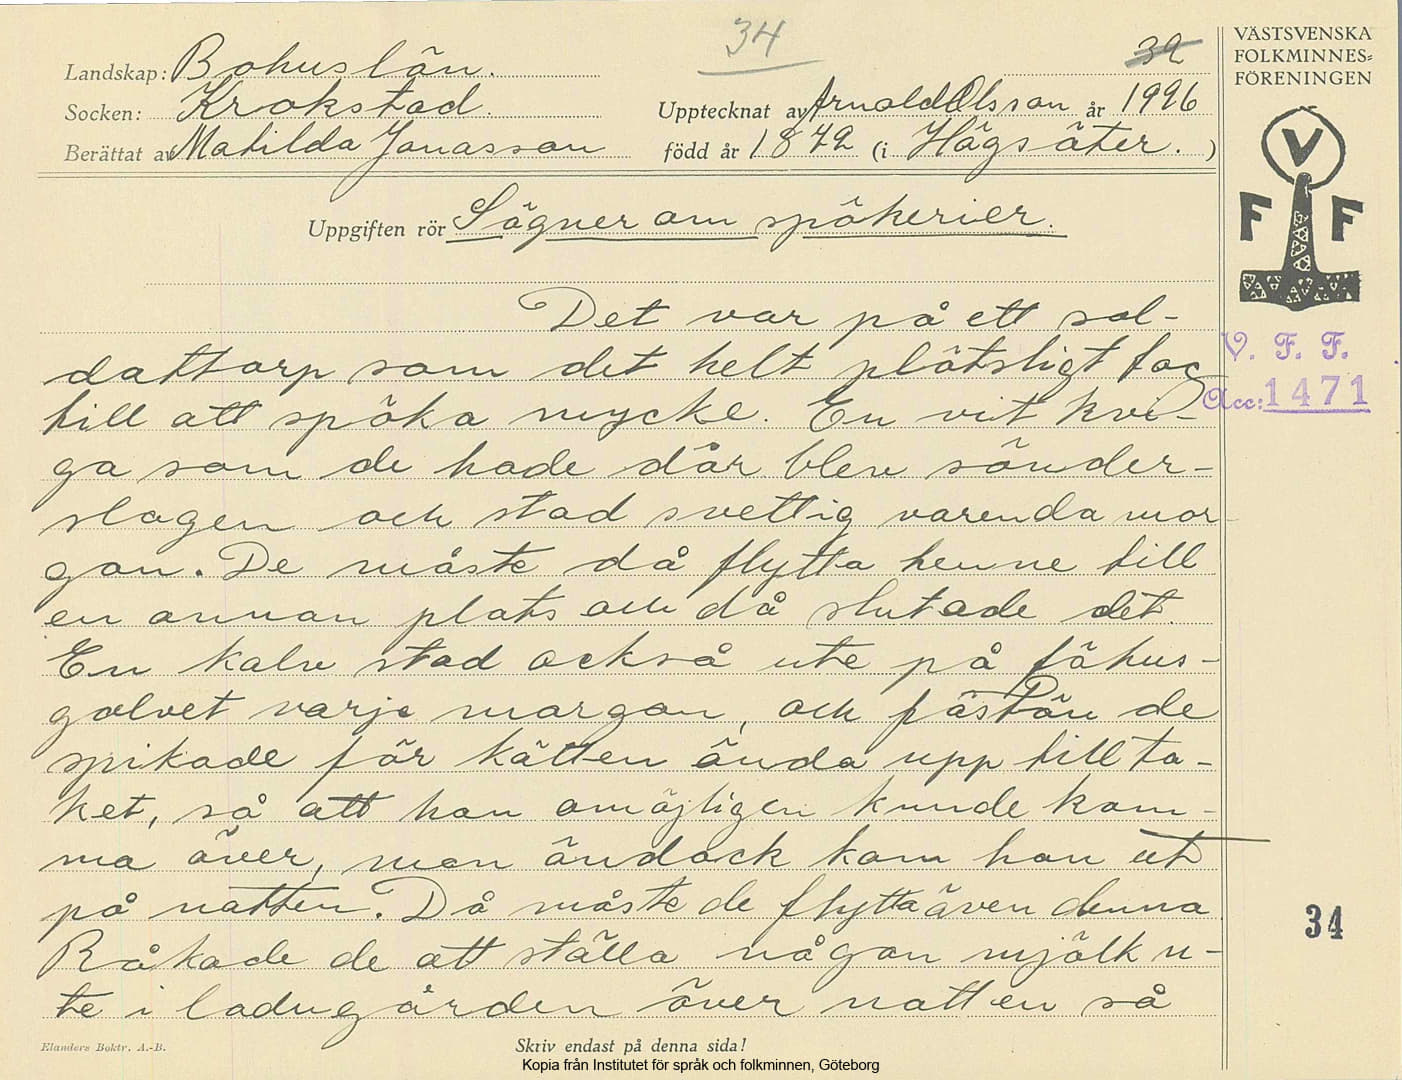 34
32
VÄSTSVENSKA
FOLKMINNES=
FÖRENINGEN
Landskap: Bohuslän.
Socken: Krokstad.
Upptecknat av Arnold Olsson år 1926
Berättat av Matilda Jonasson
född år 1842 (i Högsäter.)
V
F F
Uppgiften rör Sägner om spökerier.
V. F. F.
Acc: 1471
Det var på ett sol-
dattorp som det helt plötsligt tog
till att spöka mycke. En vit kvi-
ga som de hade där blev sönder-
slagen och stod svettig varenda mor-
gon. De måste då flytta henne till
en annan plats och då slutade det.
En kalv stod också ute på fähus-
golvet varje morgon, och fästän de
spikade för kätten ända upp till ta-
ket, så att han omöjligen kunde kom-
ma över, men ändock kom han ut
på natten. Då måste de flytta även denna
Råkade de att ställa någon mjölk u-
te i ladugården över natten så
34
Elanders Boktr. A.-B.
Skriv endast på denna sida!
Kopia från Institutet för språk och folkminnen, Göteborg